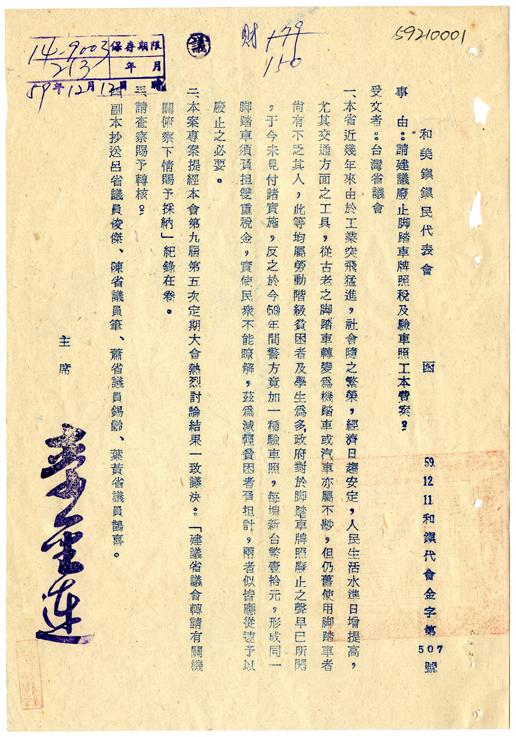 59210001
財 179
150
議
14-9003
213
保存期限
年 月
59年12月12日
和美鎮鎮民代表會 函
59 12 11 和鎮代會金字第507號
事 由:請建議廢止脚踏車牌照稅及驗車照工本費案?
受文者:台灣省議會
一、本省近幾年來由於工業突飛猛進,社會隨之繁榮,經濟日趨安定,人民生活水準日增提高,
尤其交通方面之工具,從古老之脚踏車轉變為機踏車或汽車亦屬不尠,但仍舊使用脚踏車者
尙有不乏其人,此等均屬勞動階級貧困者及學生為多,政府對於脚踏車牌照廢止之聲早已所聞
,于今未見付諸實施,反之於今59年間警方竟加一種驗車照,每塊新台幣壹拾元,形成同一
脚踏車須負担雙重稅金,實使民衆不能瞭解,茲為減輕貧困者負担計,兩者似皆應從速予以
廢止之必要。
二、本案專案提經本會第九屆第五次定期大會熱烈討論結果一致議決:「建議省議會轉請有關機
關俯察下情賜予採納」紀錄在卷。
三、請查察賜予轉核?
四、副本抄送呂省議員俊傑、陳省議員筆、蕭省議員錫齡、葉黃省議員鵲喜。
主席